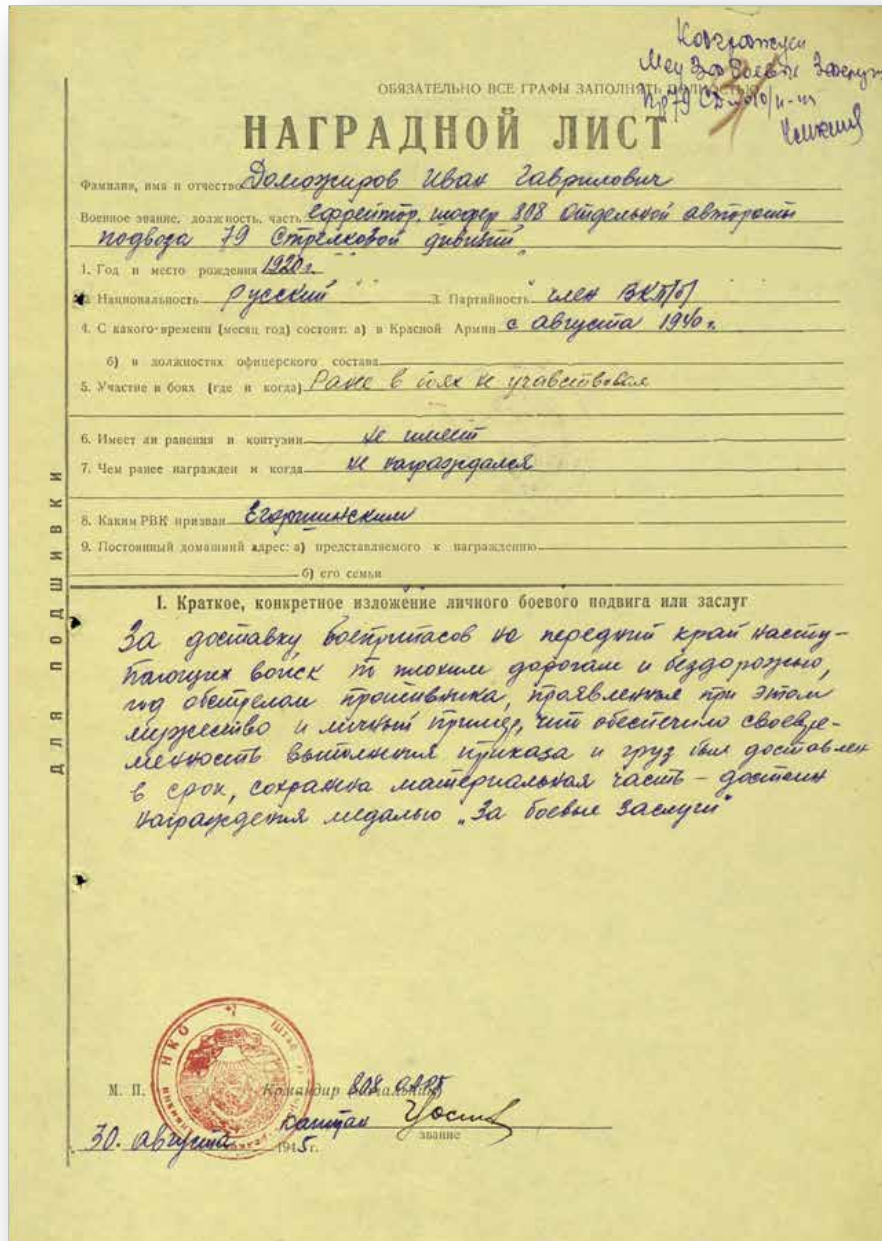 Награжден
Мед За Боевые Заслуги
Пр 79 СД
ОБЯЗАТЕЛЬНО ВСЕ ГРАФЫ ЗАПОЛНЯТЬ ПОЛНОСТЬЮ
НАГРАДНОЙ ЛИСТ
Фамилия, имя и отчество Доможиров Иван Гаврилович
Военное звание, должность, часть Ефрейтор, шофер 808 отдельной автороты
подвоза 79 Стрелковой дивизии
1. Год и место рождения 1920 г.
2. Национальность Русский 3. Партийность член ВКП/б/
4. С какого времени (месяц год) состоит: а) в Красной Армии с августа 1940 г.
б) в должностях офицерского состава
5. Участие в боях (где и когда) Ране в боях не учавствовал
6. Имеет ли ранения и контузии не имеет
7. Чем ранее награжден и когда не награждался
8. Каким РВК призван Егоршинским
9. Постоянный домашний адрес: а) представляемого к награждению
б) его семьи
ДЛЯ ПОДШИВКИ
I. Краткое, конкретное изложение личного боевого подвига или заслуг
За доставку боеприпасов на передний край насту-
пающих войск по плохим дорогам и бездорожью,
под обстрелом противника, проявленная при этом
мужество и личный пример, что обеспечило своевре-
менность выполнения приказа и груз был доставлен
в срок, сохранена материальная часть – достоин
награждения медалью „За боевые заслуги"
НКО
М. П. Командир (начальник) 808 ОАРП
капитан
звание
30. августа 1945 г.